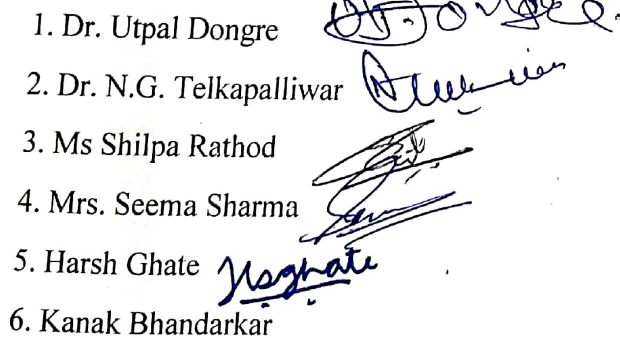 1. Dr. Utpal Dongre
2. Dr. N.G. Telkapalliwar
3. Ms Shilpa Rathod
4. Mrs. Seema Sharma
5. Harsh Ghate Hsghate
6. Kanak Bhandarkar